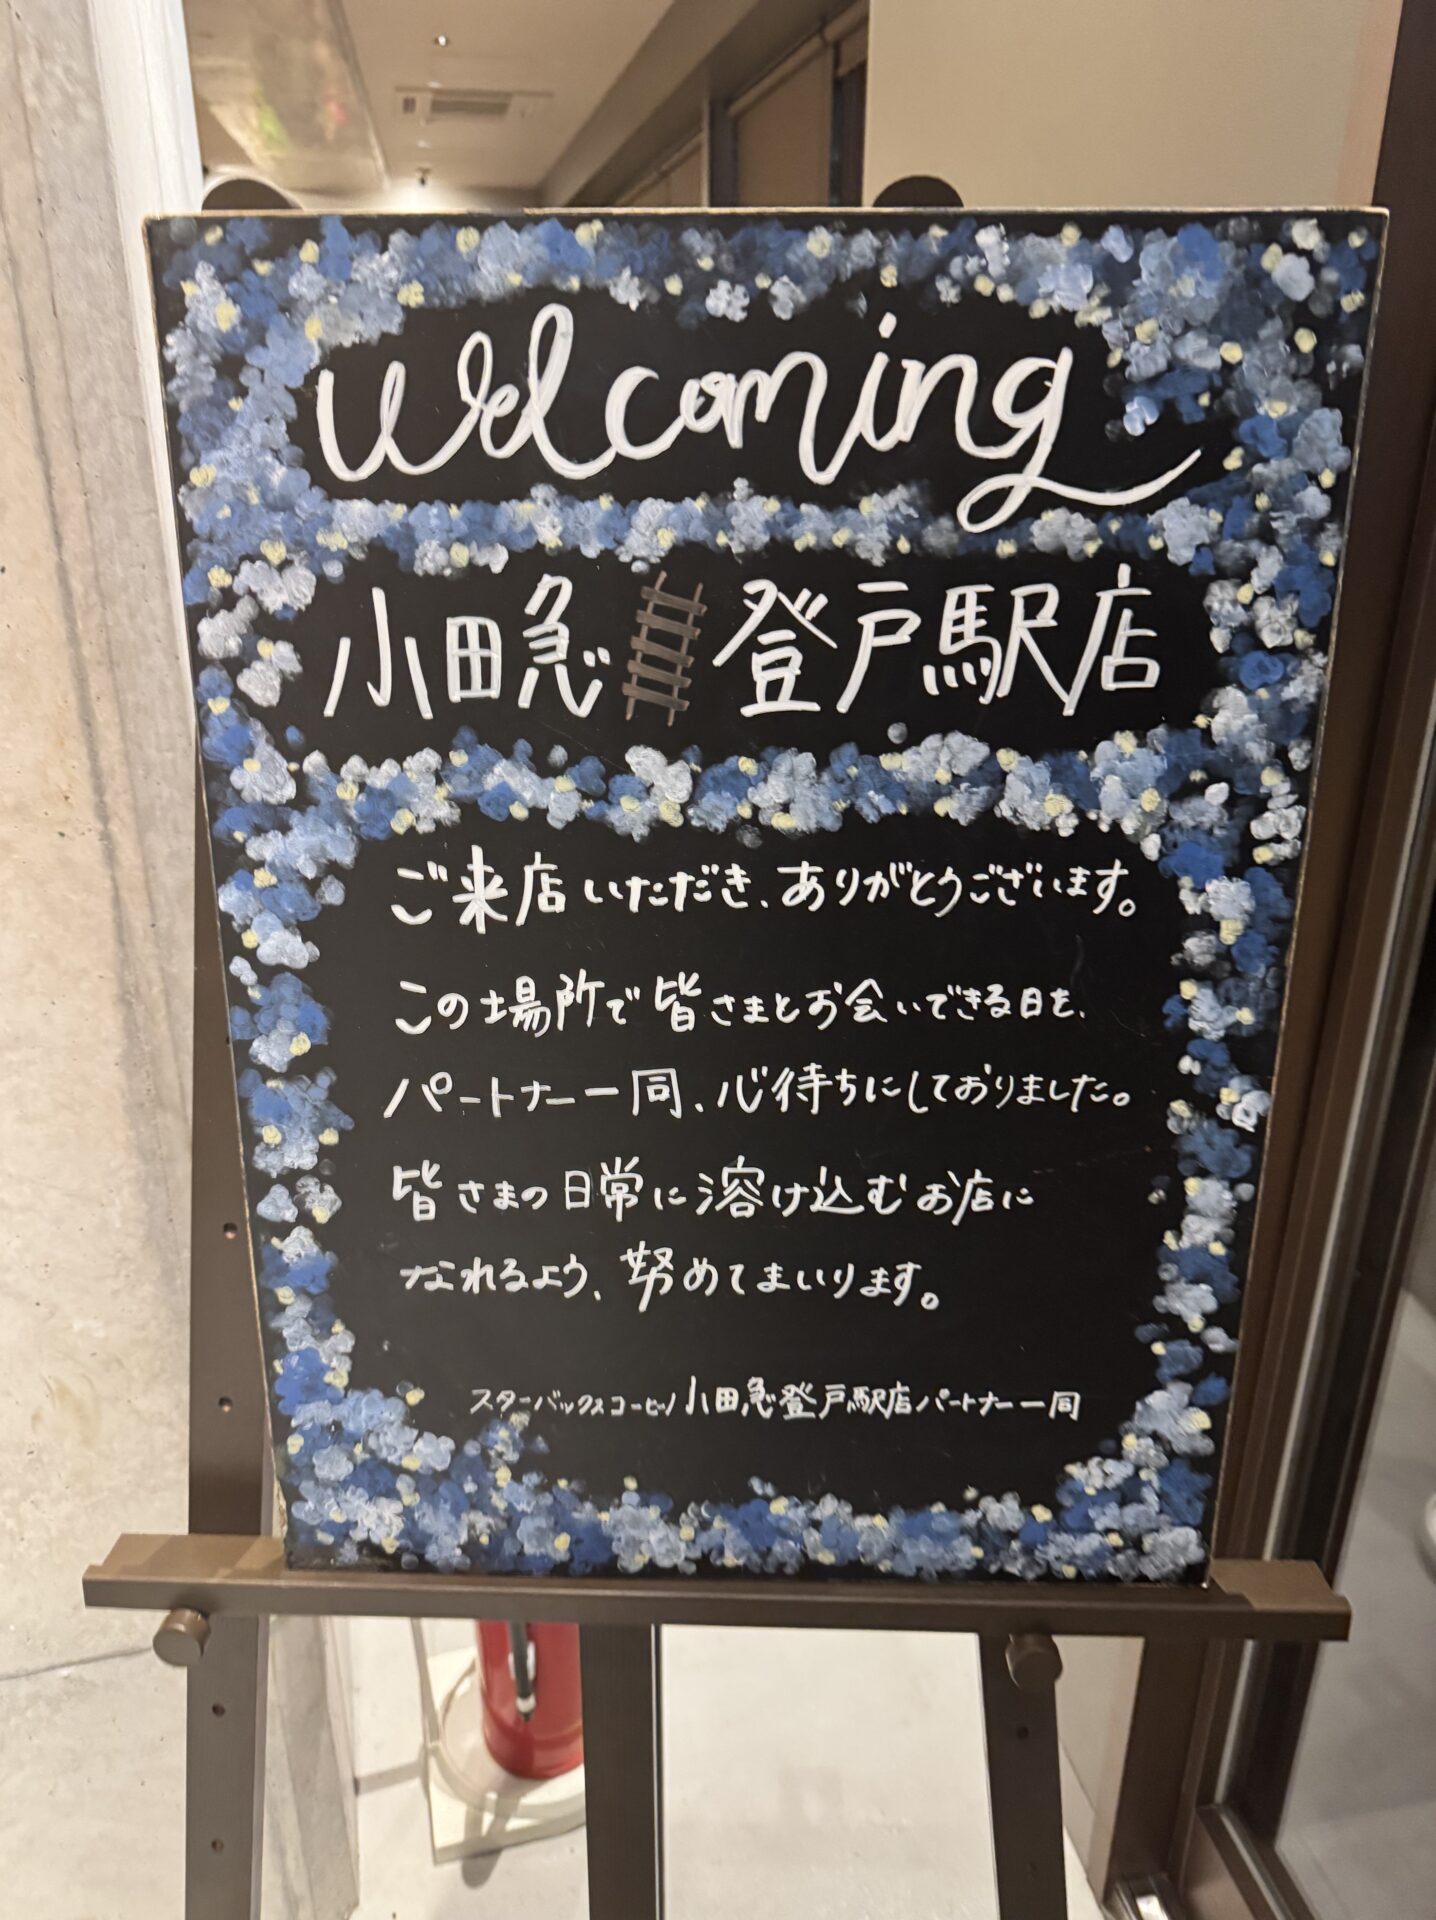 Welcoming
小田急 登戸駅店
ご来店いただき、ありがとうございます。
この場所で皆さまとお会いできる日を、
パートナー一同、心待ちにしておりました。
皆さまの日常に溶け込むお店に
なれるよう、努めてまいります。
スターバックスコーヒー 小田急登戸駅店パートナー一同